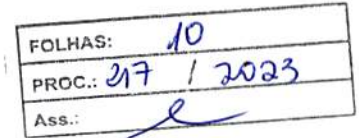 FOLHAS: 10
PROC.: 217 / 2023
Ass.: